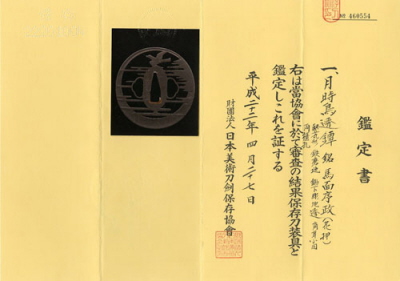 鑑定書
一、月時鳥透鐔 銘 馬面序政(花押)
右は當協會に於て審査の結果保存刀装具と
鑑定しこれを証する
平成二十三年四月二十七日
財團法人 日本美術刀劍保存協會
Nº 460554